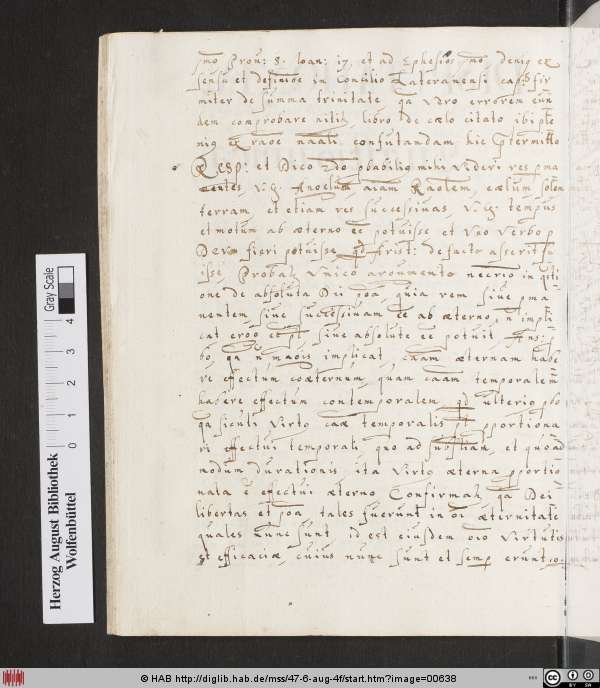 Prou: 8. Ioan: 17. et ad Ephesios denig ex
sensu et definioe in Concilio Lateranensi cap: fir
miter de summa trinitate qa Vero errorem eun
dem comprobare nitit, libro de cælo citato ibi
confutandam hic prtermitto
Resp: et Dico 2do pbabilig mihi Videri res pma
nentes, V. g. Angelum, aiam Raolem, cælum
terram et etiam res successiuas, V. g. tempus
et motum ab æterno ee potuisse et Vno Verbo p
Deum fieri potuisse, Arist: de facto asserit fu
isse, Probat Vnico argumento necrio in qsti
one de absoluta Dei poa, quia rem siue pma
nentem, siue successiuam ee ab æterno, n impli
cat ergo siue absolute ee potuit Ans:
bo, qa n magis implicat, caam æternam habe
re effectum coæternum, quam caam temporalem
habere effectum contemporalem, qd ulterig pbo
qa siculi Virtg caæ temporalis pt pportiona
ri effectui temporali quo ad substiam, et quoad
modum durationis ita Virtg æterna pportio
nata e effectui æterno Confirmat, qa Dei
libertas et poa tales fuerunt in oi æternitate
quales nunc sunt id est eiusdem oio Virtutis
et efficaciæ, cuius nunc sunt et semp erunt,
Herzog August Bibliothek
Wolfenbüttel
0 1 2 3 4
Gray Scale
© HAB http://diglib.hab.de/mss/47-6-aug-4f/start.htm?image=00638
cc BY SA